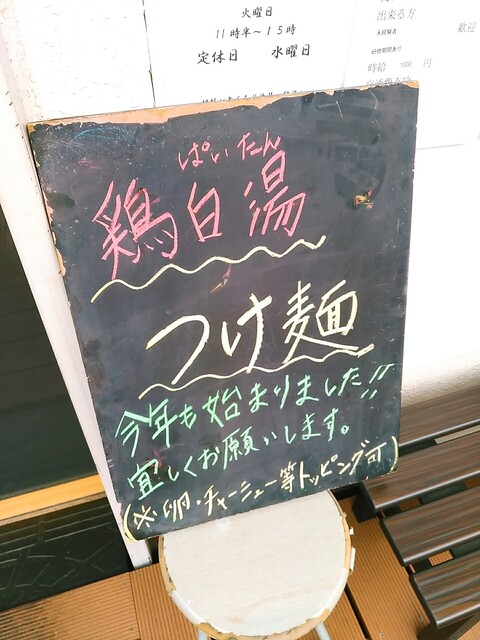 火曜日
11時半～15時
定休日　水曜日
出来る方
未経験者　歓迎
研修期間あり
時給 1000 円
ぱいたん
鶏白湯
つけ麺
今年も始まりました!!
宜しくお願いします。
(※卵・チャーシュー等トッピング可)